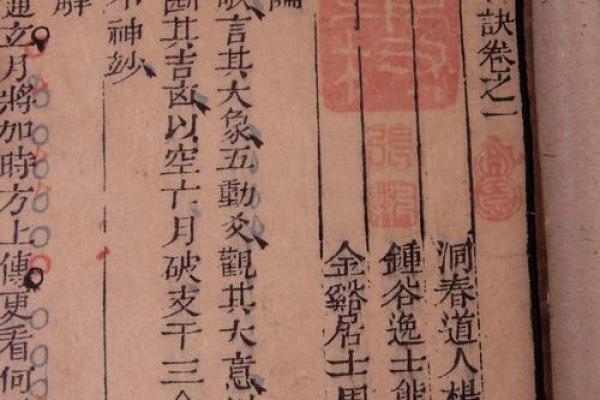 訣卷之一
洞春道人楊
鍾谷逸士熊
金谿居士周
張
論
言其大象五動爻觀其大意
斷其吉凶以空亡月破支干三合
不神玅
解
道玄月將加時方上傳更看何